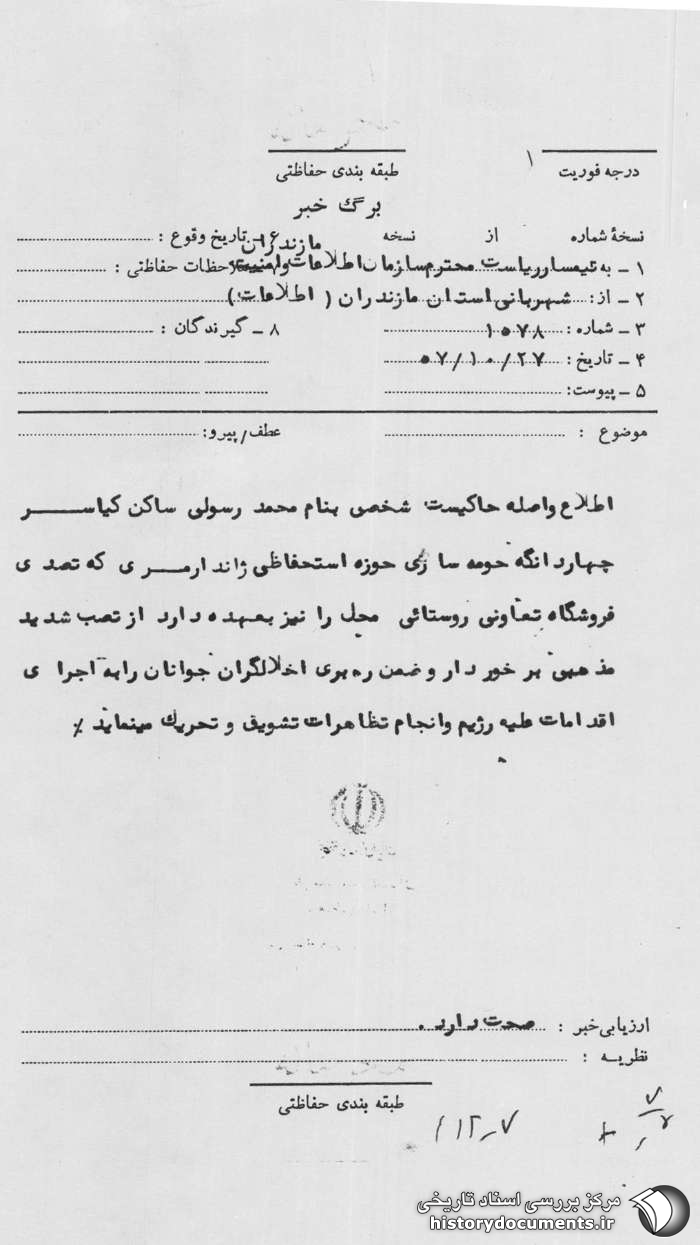 طبقه بندی حفاظتی
درجه فوریت ۱
برگ خبر
نسخهٔ شماره از نسخه
۶ـ تاریخ وقوع :
۱ ـ به تیمسار ریاست محترم سازمان اطلاعات و امنیت مازندران
ملاحظات حفاظتی :
۲ ـ از: شهربانی استان مازندران ( اطلاعات )
۳ ـ شماره : ۱۰۵۷۸
۸ ـ گیرندگان :
۴ ـ تاریخ : ۵۷/۱۰/۲۷
۵ ـ پیوست:
موضوع :
عطف/پیرو:
اطلاع واصله حاکیست شخصی بنام محمد رسولی ساکن کیاسر
چهاردانگه حومه ساری حوزه استحفاظی ژاندارمری که تصدی
فروشگاه تعاونی روستائی محل را نیز بعهده دارد از تصب شدید
مذهبی برخوردار و ضمن رهبری اخلالگران جوانان را به اجرای
اقدامات علیه رژیم و انجام تظاهرات تشویق و تحریک مینماید ٪
ارزیابی خبر : صحت دارد .
نظریه :
طبقه بندی حفاظتی
مرکز بررسی اسناد تاریخی
historydocuments.ir